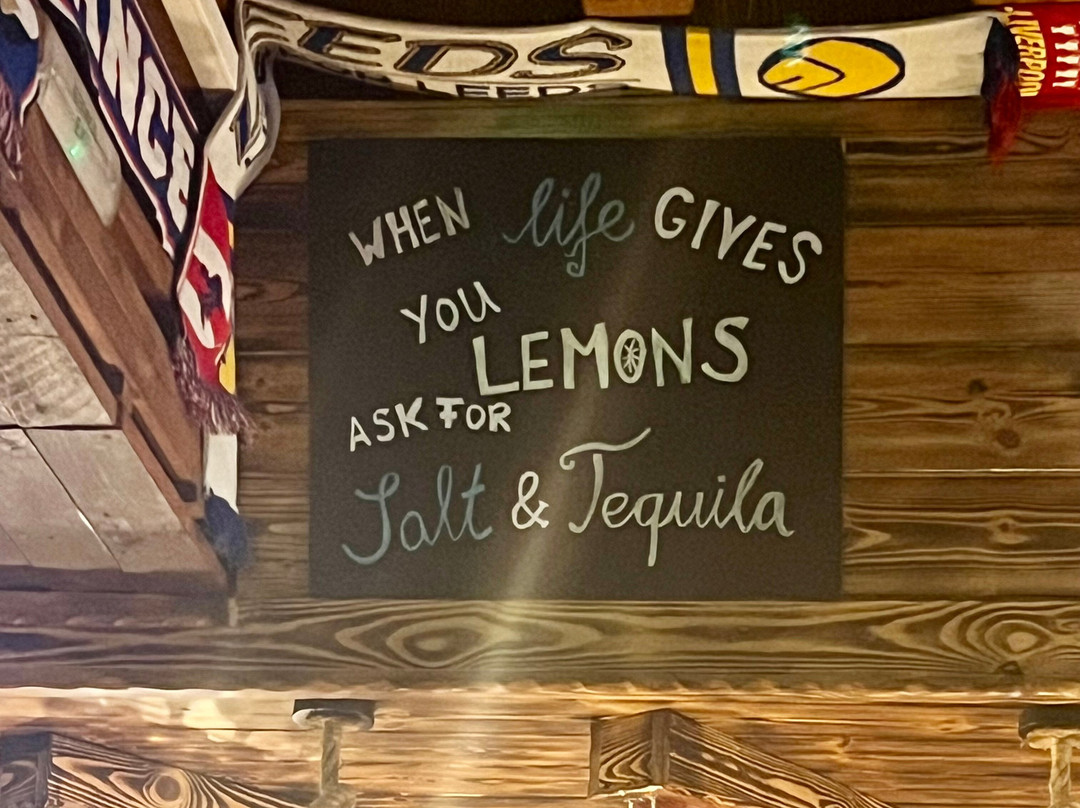 EEDS
LEEDS
LIVERPOOL
WHEN life GIVES
YOU
LEMONS
ASK FOR
Salt & Tequila